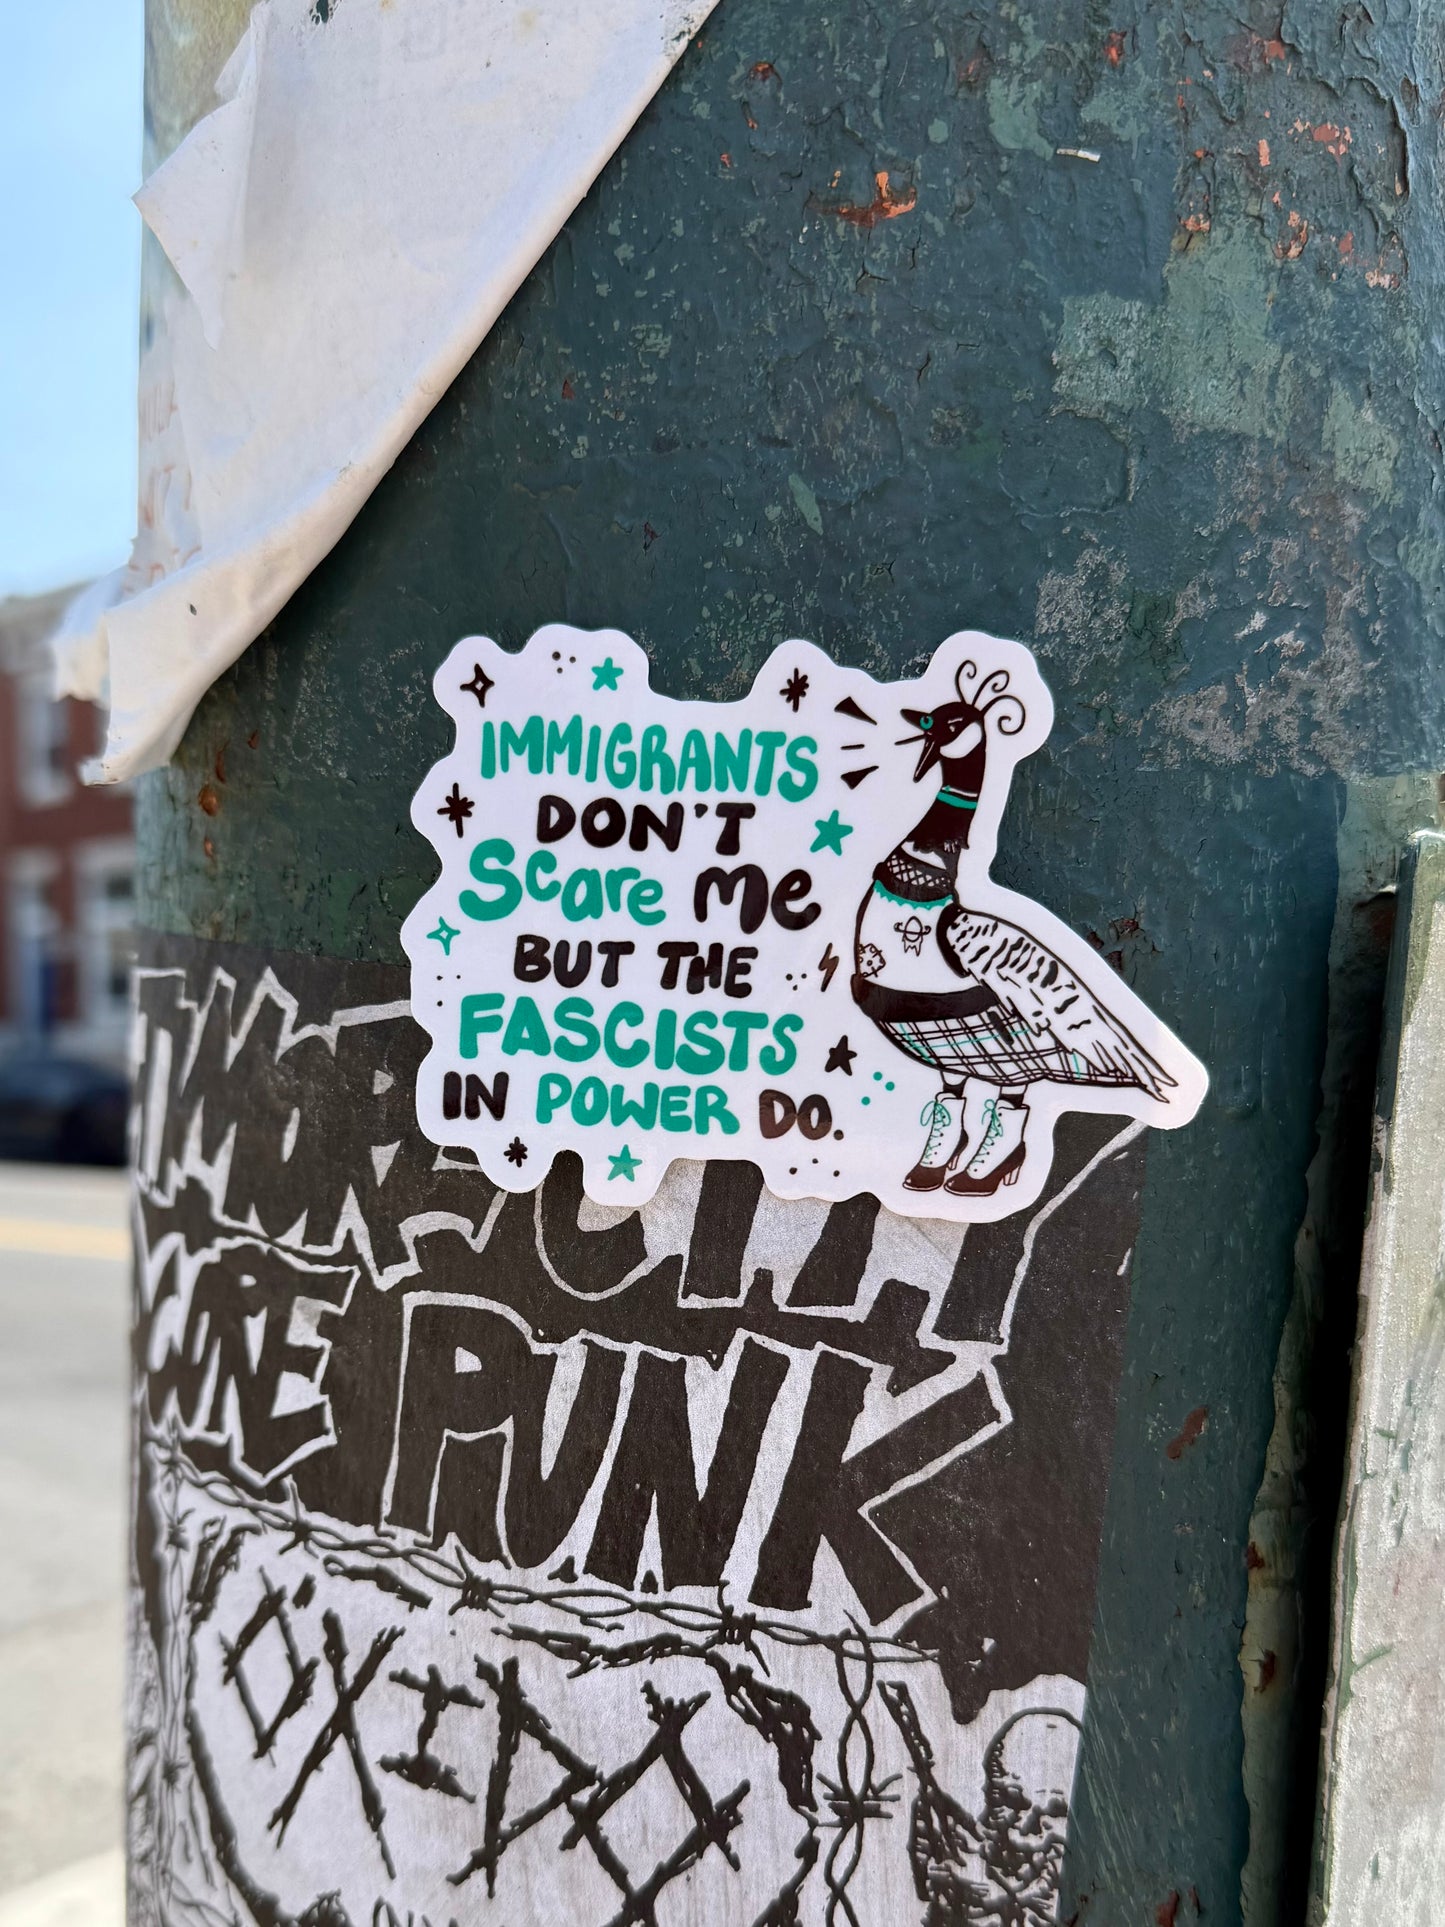 IMMIGRANTS
DON'T
Scare me
BUT THE
FASCISTS
IN POWER DO.
CORE PUNK